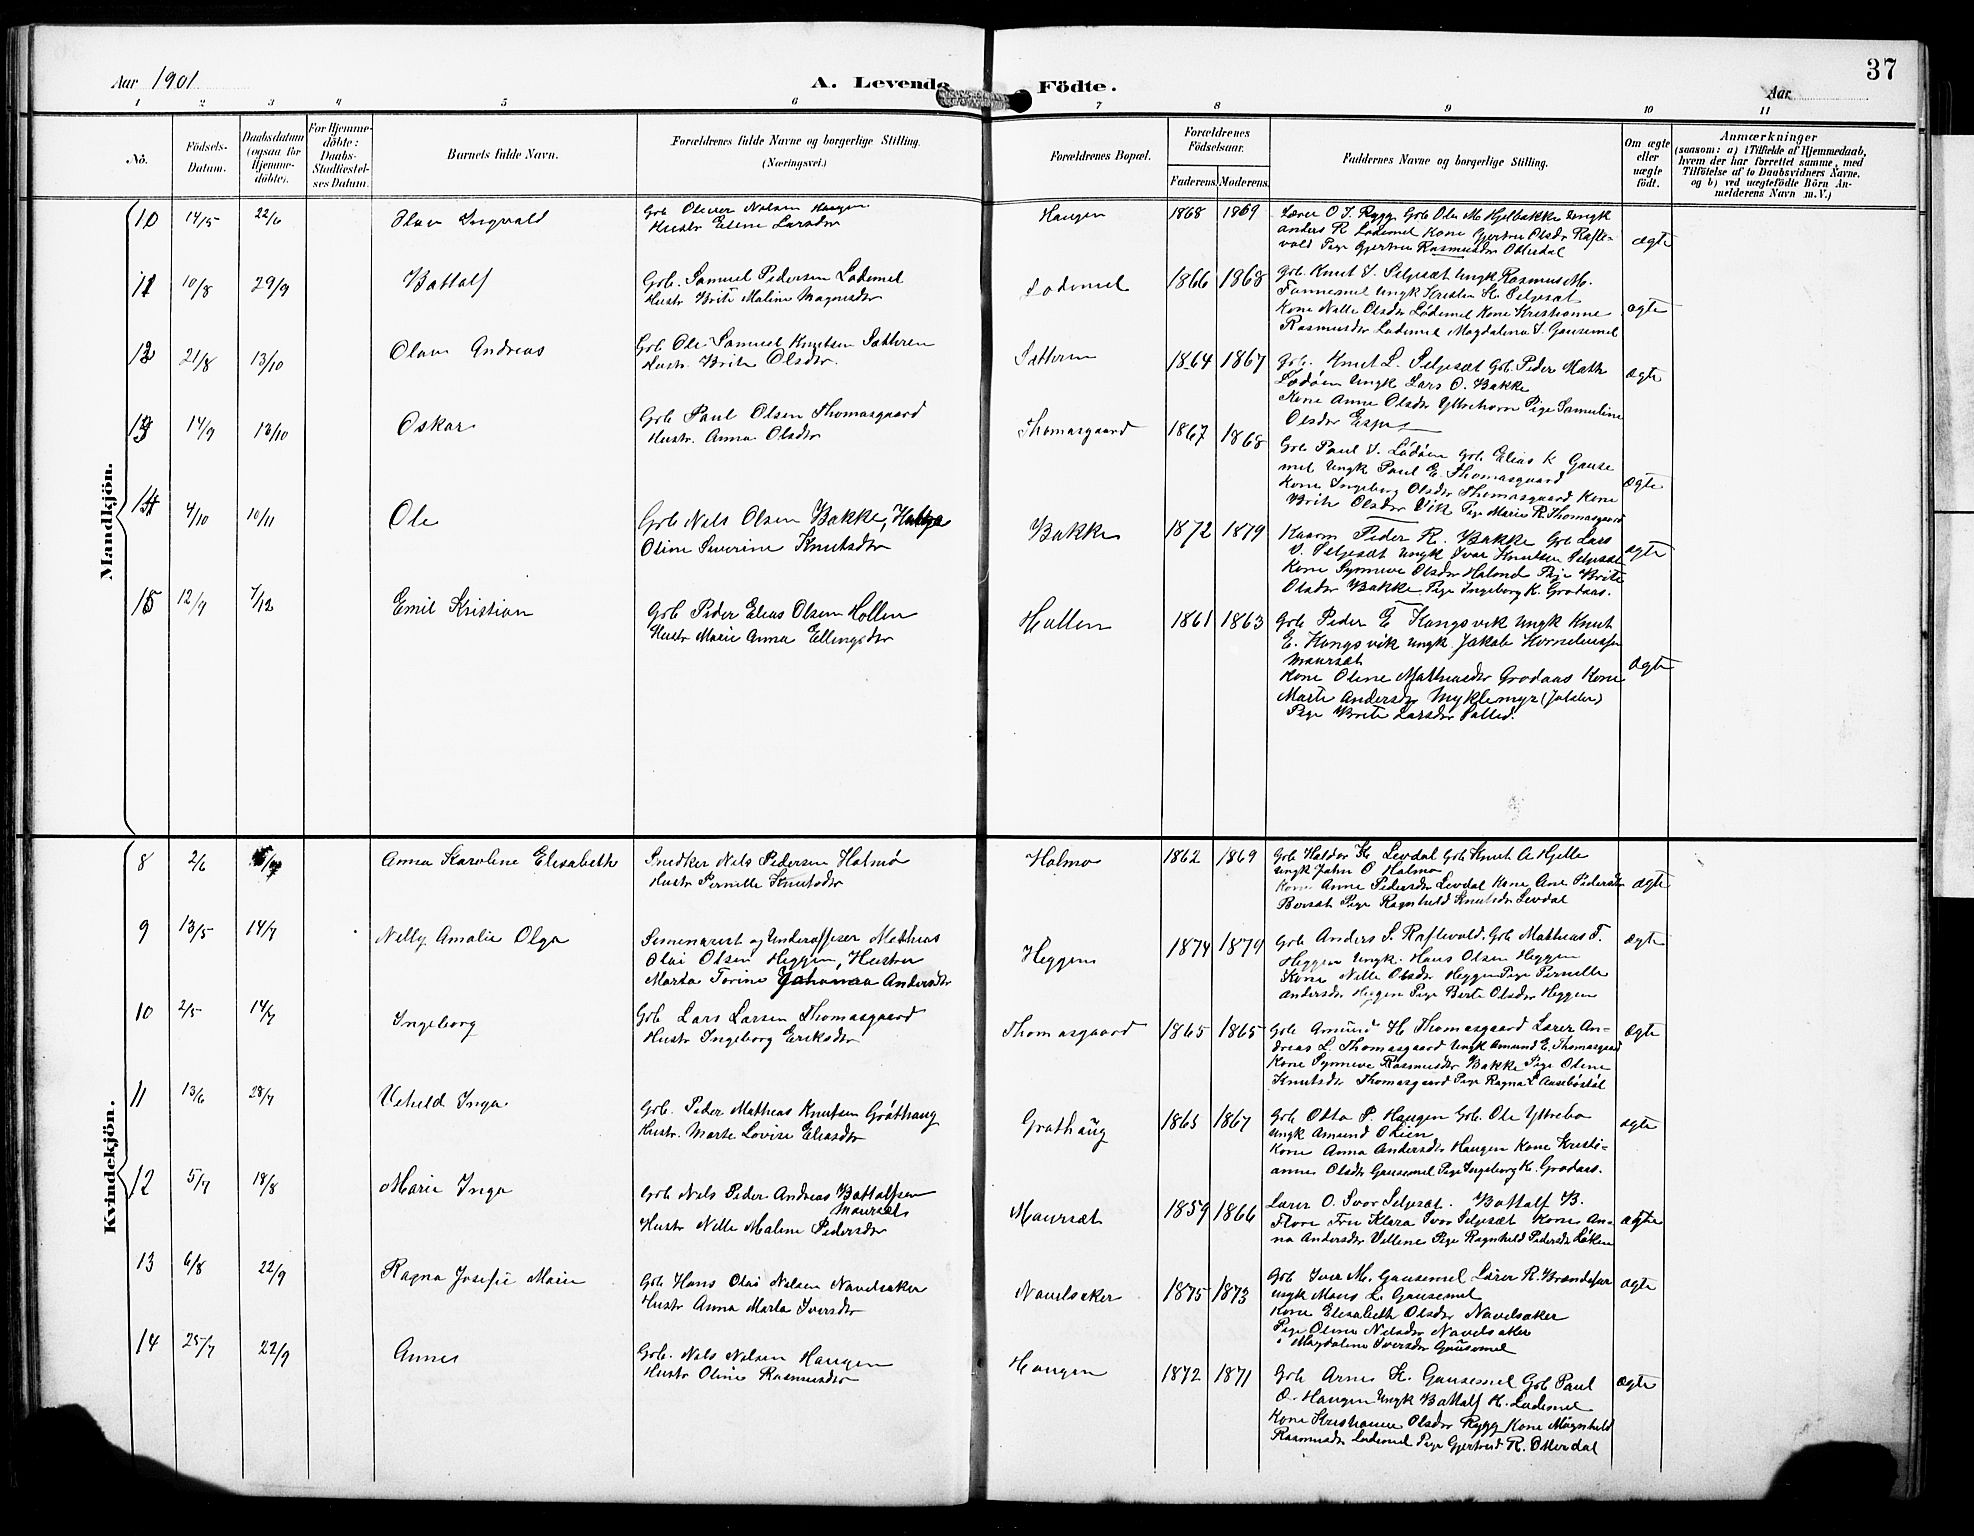 Aar 1901
A. Levende Födte.
Aar
37
1 2 3 4 5 6 7 8 9 10 11
Nö.
Födsels-Datum.
Daabsdatum (ogsaa for Hjemmedöbte).
For Hjemmedöbte: Daabs-Stadfæstelses Datum.
Barnets fulde Navn.
Forældrenes fulde Navne og borgerlige Stilling. (Næringsvei.)
Forældrenes Bopæl.
Forældrenes Födselsaar.
Faderens. Moderens.
Faddernes Navne og borgerlige Stilling.
Om ægte eller uægte födt.
Anmærkninger
(saasom: a) i Tilfælde af Hjemmedaab,
hvem der har forrettet samme, med
Tilföielse af to Daabsvidners Navne,
og b) ved uægtefödte Börn An-
melderens Navn m. V.)
Mandkjön.
10 14/5 22/6 Olav Ingvald
Gbr Oliver Nilsen Haugen
Hustr Eline Larsdtr
Haugen 1868 1869
Lærer O. I. Rygg Grb Ole M. Hjelbakke Ungk
Anders R. Lødemel Kone Gjertrue Olsdr Rafte-
vold Pige Gjertrue Rasmusdr Otterdal
ægte
11 10/8 29/9 Battolf
Grb. Samuel Pedersen Lødemel
Hustr Brite Maline Magnusdr
Lødemel 1866 1868
Grb. Knut I. Seljesæt Ungk Rasmus M.
Tunnemel Ungk Kristen K. Seljesæt
Kone Nille Olsdr Lødemel Kone Kristianne
Rasmusdr Lødemel Magdalena I. Gausemel
ægte
12 21/8 13/10 Olav Andreas
Grb. Ole Samuel Knutsen Sætteren
Hustr. Brite Olsdr.
Sætteren 1864 1867
Grb. Knut L. Seljesæt Grb. Peder Math
Lødøen Ungk Lars O. Bakke
Kone Anne Olsdr Yttrehorn Pige Samueline
Olsdr Espe
ægte
13 14/9 13/10 Oskar
Grb Paul Olsen Thomasgaard
Hustr. Anna Olsdr
Thomasgaard 1867 1868
Grb Paul I. Lødøen Grb. Elias K Gause
mel Ungk Paul E. Thomasgaard
Kone Ingeborg Olsdr Thomasgaard Kone
Brite Olsdr Vik Pige Marie R. Thomasgaard
ægte
14 4/10 10/11 Ole
Grb Nils Olsen Bakke,
Oline Severine Knutsdr
Bakke 1872 1879
Kaarm Peder R. Bakke Grb Lars
I. Seljesæt Ungk Ivar Knutsen Seljesæt
Kone Synneve Olsdr Holmø Pige Brite
Olsdr Bakke Pige Ingeborg K. Grodaas.
ægte
15 12/9 7/12 Emil Kristian
Grb Peder Elias Olsen Hallen
Hustr Marie Anna Ellingsdr
Hallen 1861 1863
Grb Peder E Kongsvik Ungk Knut
E. Kongsvik Ungk Jakob Korneliussen
Maursæt
Kone Oline Mathiasdr Grodaas Kone
Marte Andersdr Myklemyr (Jølster)
Pige Brite Larsdr
ægte
Kvindekjön.
8 2/6 Anna Karoline Elisabeth
Snedker Nils Pedersen Holmø
Hustr Pernille Knutsdr
Holmø 1862 1869
Grb Haldor K Levdal Grb Knut A Hjelle
Ungk John O Holmø
Kone Anne Pedersdr Levdal Kone Ane Pedersdr
Bersæt Pige Ragnhild Knutsdr Levdal
ægte
9 13/5 14/7 Nelly Amalie Olga
Seminarist og Underofficer Mathias
Olai Olsen Heggen, Hustru
Marta Torine Johanna Andersdr
Heggen 1874 1879
Grb Anders S. Raftevold, Grb Mathias T.
Heggen Ungk. Hans Olsen Heggen
Kone Nille Olsdr Heggen Pige Pernille
Andersdr Heggen Pige Berte Olsdr Heggen
ægte
10 2/5 14/7 Ingeborg
Grb Lars Larsen Thomasgaard
Hustr Ingeborg Eriksdr
Thomasgaard 1865 1865
Grb Amund H. Thomasgaard Lærer An-
dreas L. Thomasgaard Ungk Amund E. Thomasgaard
Kone Synneve Rasmusdr Bakke Pige Oline
Knutsdr Thomasgaard Pige Ragna L Aasebøstøl
ægte
11 13/6 28/7 Inga
Grb. Peder Mathias Knutsen Grøthaug
Hustr. Marte Lovise Eliasdr
Grøthaug 1865 1867
Grb Otto P. Haugen Grb. Ole Yttrebø
Ungk Amund O Lien
Kone Anna Andersdr Haugen Kone Kristi-
anne Olsdr Gausemel Pige Ingeborg K. Grodaas.
ægte
12 5/7 18/8 Marie Inga
Grb Nils Peder Andreas Battolfsen
Maursæt
Hustr Nille Maline Pedersdr
Maursæt 1859 1866
Lærer O. Svor Seljesæt. Battolf B.
Flore Fru Klara Svor Seljesæt Kone An-
na Andersdr Vollene Pige Ragnhild Pedersdr Løken
ægte
13 6/8 22/9 Ragna Josefie Marie
Grb Hans Olai Nilsen Navelsaker
Hustr Anna Marta Iversdr
Navelsaker 1875 1873
Grb Iver M. Gausemel Lærer R. Brændefur
Ungk Mons L. Gausemel
Kone Elisabeth Olsdr Navelsaker
Pige Oline Nilsdr Navelsaker
" Magdalene Iversdr Gausemel
ægte
14 25/7 22/9 Annes
Grb. Nils Nilsen Haugen
Hustr Oline Rasmusdr
Haugen 1872 1871
Grb Arne K. Gausemel Grb Paul
O. Haugen Ungk Battolf K. Lødemel
Kone Kristianne Olsdr Rygg Kone Magnhild
Rasmusdr Lødemel Pige Gjertrud R. Otterdal
ægte